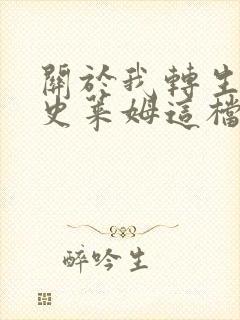 關於我轉生
史萊姆這檔
醉吟生